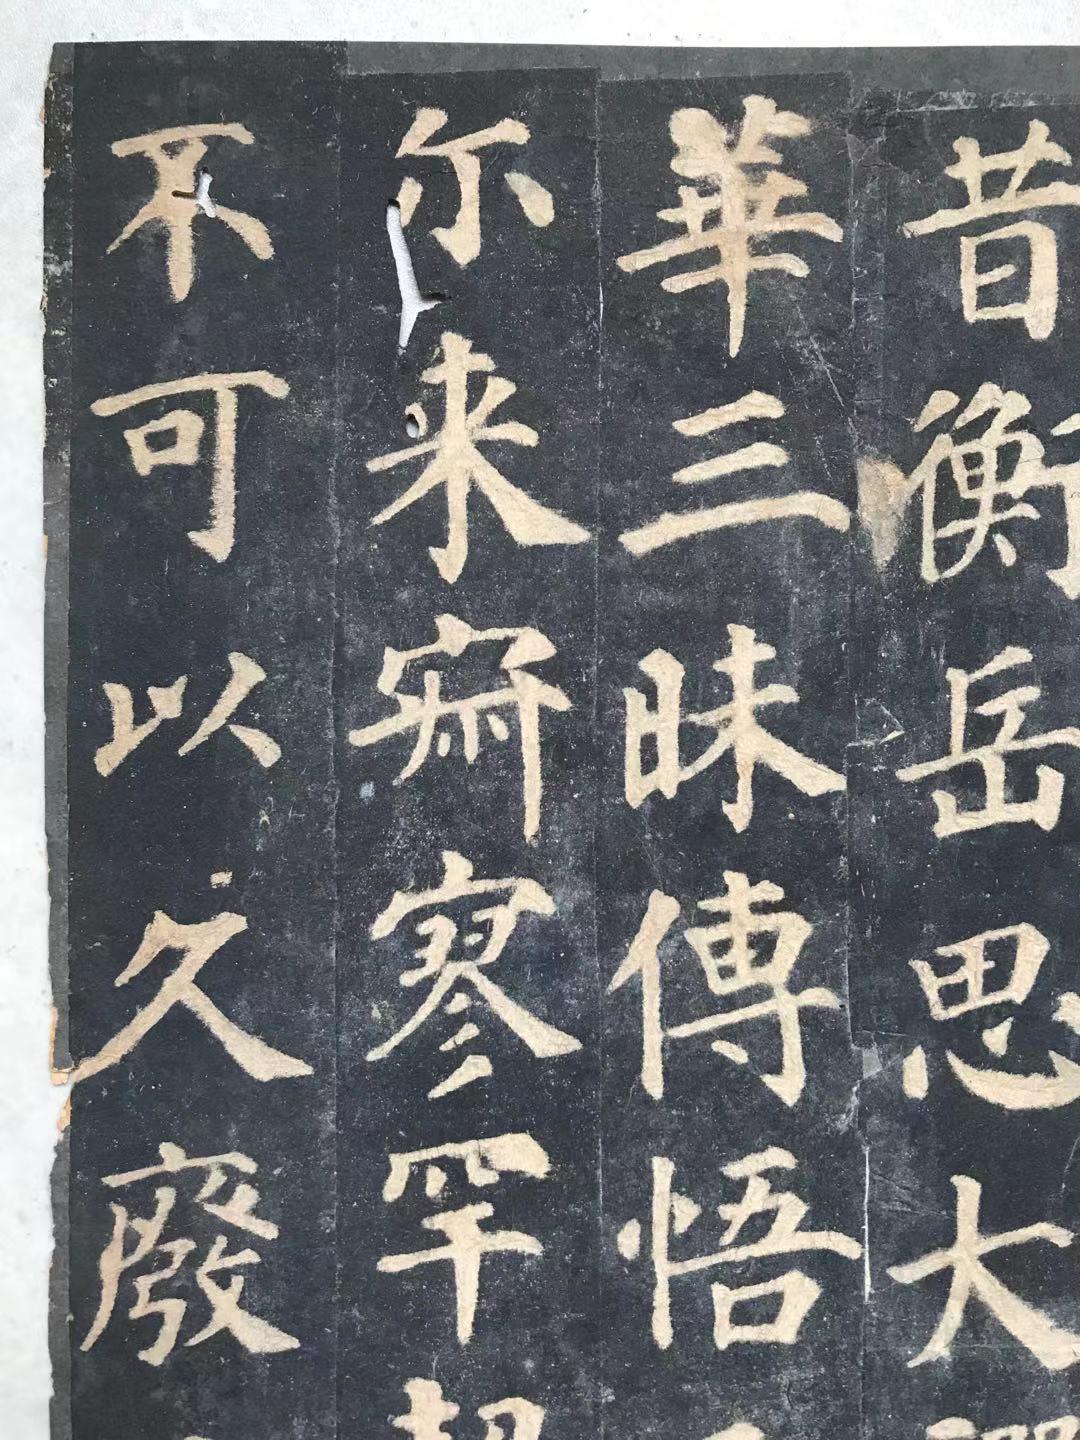 昔衡岳思大禪
華三昧傳悟
尔来寂寥罕契
不可以久廢